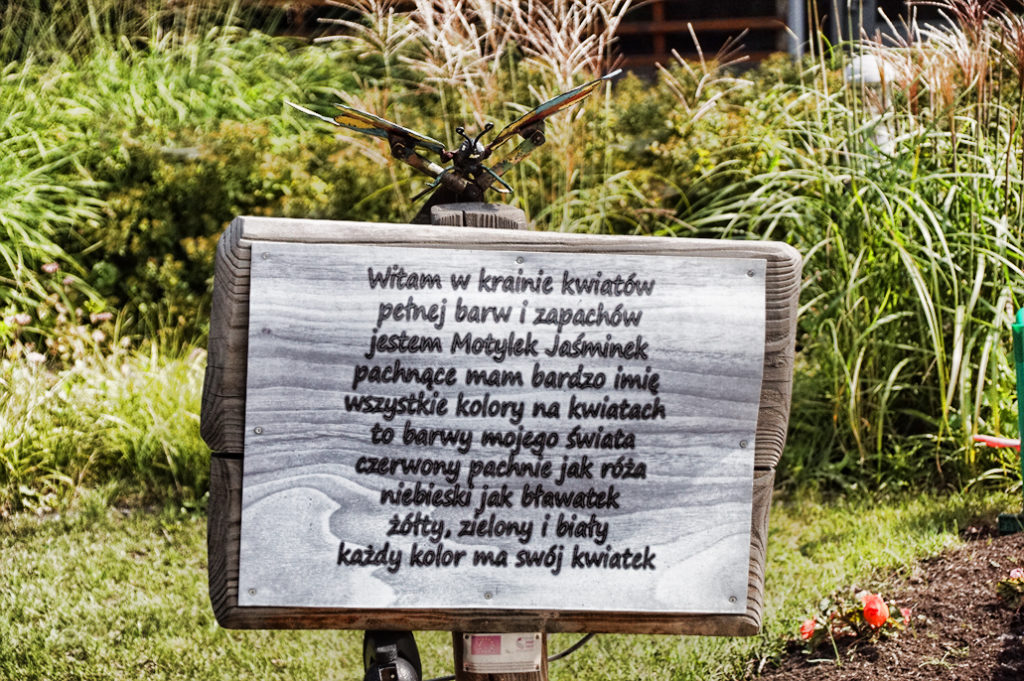 Witam w krainie kwiatów
pełnej barw i zapachów
jestem Motylek Jaśminek
pachnące mam bardzo imię
wszystkie kolory na kwiatach
to barwy mojego świata
czerwony pachnie jak róża
niebieski jak bławatek
żółty, zielony i biały
każdy kolor ma swój kwiatek